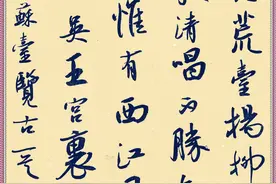 荒臺楊柳
清唱不勝
惟有西江
吳王宮裏
蘇臺覽古